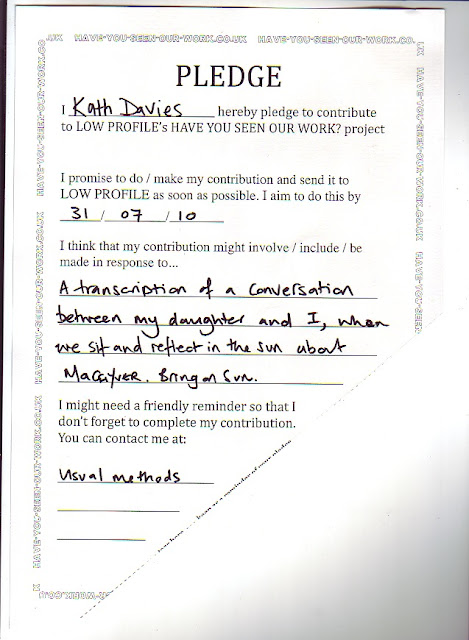 .UK HAVE-YOU-SEEN-OUR-WORK.CO.UK HAVE-YOU-SEEN-OUR-WORK.CO.
PLEDGE
I Kath Davies hereby pledge to contribute
to LOW PROFILE'S HAVE YOU SEEN OUR WORK? project
I promise to do / make my contribution and send it to
LOW PROFILE as soon as possible. I aim to do this by
31 / 07 / 10
I think that my contribution might involve / include / be
made in response to...
A transcription of a conversation
between my daughter and I, when
we sit and reflect in the sun about
MacGyver. Bring on Sun.
I might need a friendly reminder so that I
don't forget to complete my contribution.
You can contact me at:
Usual methods
HAVE-YOU-SEEN-OUR-WORK.CO.UK
HAVE-YOU-SEEN-OUR-WORK.CO.UK